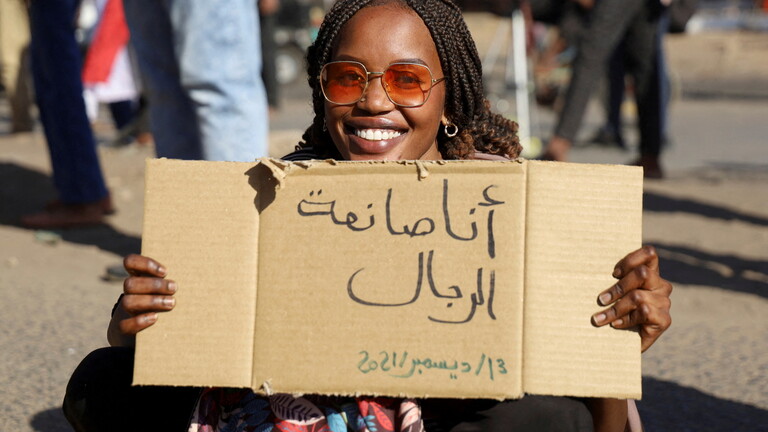 أنا صانعة
الرجال
13/ديسمبر/2021